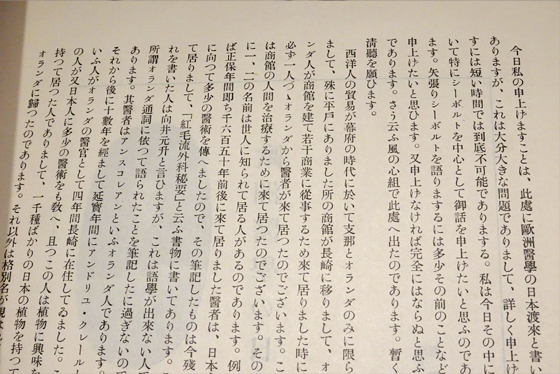 今日私の申上げますことは、此處に歐洲醫學の日本渡來と書い
ありますが、これは大分大きな問題でありまして、詳しく申上げ
すには短い時間では到底不可能であります。私は今日その中に
いて特にシーボルトを中心として御話を申上げたいと思ふのであ
ます。矢張りシーボルトを語りまするには多少その前のことなど
申上げたいと思ひます。又申上げなければ完全にはならぬと思ふ
であります。さう云ふ風の心組で此處へ出たのであります。暫く
清聽を願ひます。
西洋人の貿易が幕府の時代に於いて支那とオランダのみに限ら
まして、殊に平戸にありました所の商館が長崎に移りまして、オ
ンダ人が商館を建て若干商業に從事するため來て居ました時に
必ず一人づゝオランダから醫者が來て居つたのでございます。こ
は商館の人間を治療するために來て居つたのでございます。その
に一、二の名前は世人に知られて居る人があるのであります。例
ば正保年間即ち千六百五十年前後に來て居りました醫者は、日本
に向つて多少の醫術を傳へましたので、その筆記したものは今殘
て居りまして、「紅毛流外科秘要」と云ふ書物に書いてあります。
れを書いた人は向井元升と言ひますが、これは語學が出來ない人で
所謂オランダ通詞に依つて語られたことを筆記したに過ぎないの
あります。其醫者はアンスコレアンといふオランダ人であります。
それから後に十數年を經まして延寶年間にアンドリユ・クレール
いふ人がオランダの醫官として四年間長崎に在住してゐました。こ
の人が又日本人に多少の醫術をも敎へ、且つこの人は植物に興味を
持つて居つた人でありまして、一千種ばかりの日本の植物を持つて
オランダに歸つたのであります。それ以外は格別名が